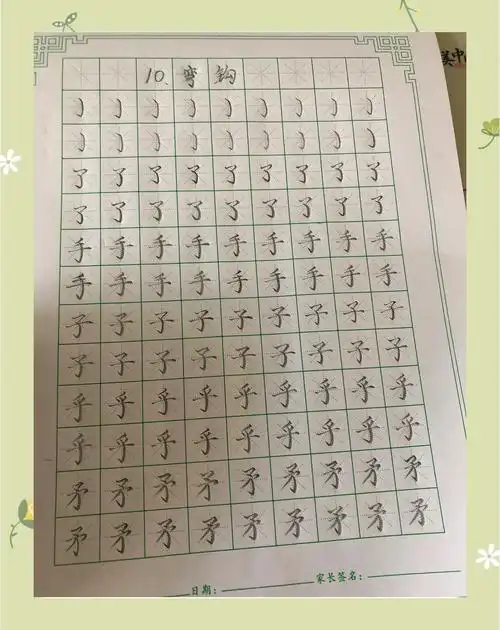 10、弯钩
㇁㇁㇁㇁㇁㇁㇁㇁㇁
㇁㇁㇁㇁㇁㇁㇁㇁㇁
了了了了了了了了了
了了了了了了了了了
手手手手手手手手手
手手手手手手手手手
子子子子子子子子子
子子子子子子子子子
乎乎乎乎乎乎乎乎乎
乎乎乎乎乎乎乎乎乎
矛矛矛矛矛矛矛矛矛
矛矛矛矛矛矛矛矛矛
日期： 家长签名：